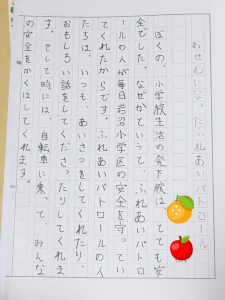 おせわになっ　れあいパトロール
ぼくの、小学校生活の登下校は、とても安
全でした。なぜかというと、ふれあいパトロ
ールの人が毎日岩沼小学区の安全を守ってい
てくれたからです。ふれあいパトロールの人
たちは、いつも、あいさつをしてくれたり、
おもしろい話をしてくださったりしてくれま
す。そして時には、自転車に乗って、みんな
の安全をかくほしてくれます。